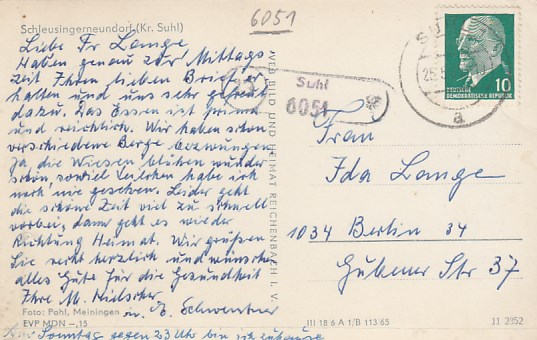 6051
Schleusingerneundorf (Kr. Suhl)
Liebe Fr Lange
Haben genau zur Mittags
zeit Ihren lieben Brief er
halten und uns sehr gefreut
dazu. Das Essen ist prima
und reichlich. Wir haben schon
verschiedene Berge bezwungen
Ja, die Wiesen blühen wunder
schön, soviel habe ich
noch nie gesehen. Leider geht
die schöne Zeit viel zu schnell
vorbei, dann geht es wieder
Richtung Heimat. Wir grüßen
Sie recht herzlich und wünschen
alles Gute für die Gesundheit
Ihre M. Hielscher
u. E. Schwentner
Foto: Pohl, Meiningen
EVP MDN –,15
Sonntag gegen 23 Uhr bin ich zuhause
VEB BILD UND HEIMAT REICHENBACH I. V.
Suhl
6051
SU
25.5
a
10
DEUTSCHE
DEMOKRATISCHE REPUBLIK
Frau
Ida Lange
1034 Berlin 34
Gubener Str 37
III 18 6 A 1/B 113/65
11 2952